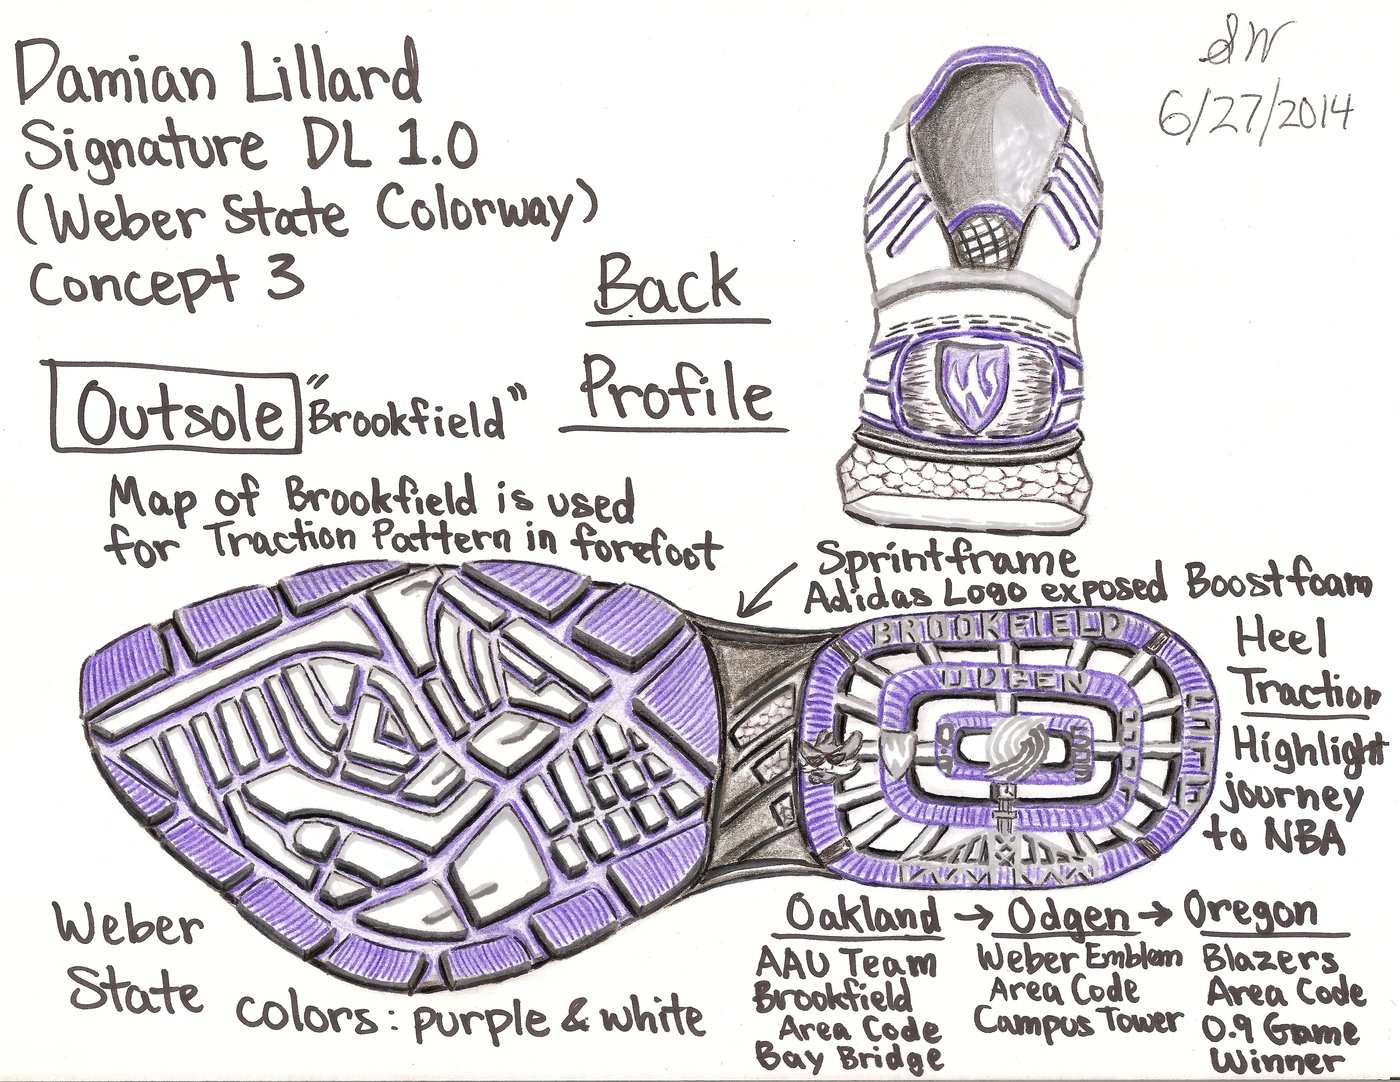 Damian Lillard
Signature DL 1.0
(Weber State Colorway)
Concept 3
SW
6/27/2014
Back
Profile
Outsole "Brookfield"
Map of Brookfield is used
for Traction Pattern in forefoot
WS
Sprintframe
Adidas Logo exposed Boostfoam
Heel
Traction
Highlight
journey
to NBA
BROOKFIELD
ODGEN
Weber
State
colors: purple & white
Oakland → Odgen → Oregon
AAU Team
Brookfield
Area Code
Bay Bridge
Weber Emblem
Area Code
Campus Tower
Blazers
Area Code
0.9 Game
Winner